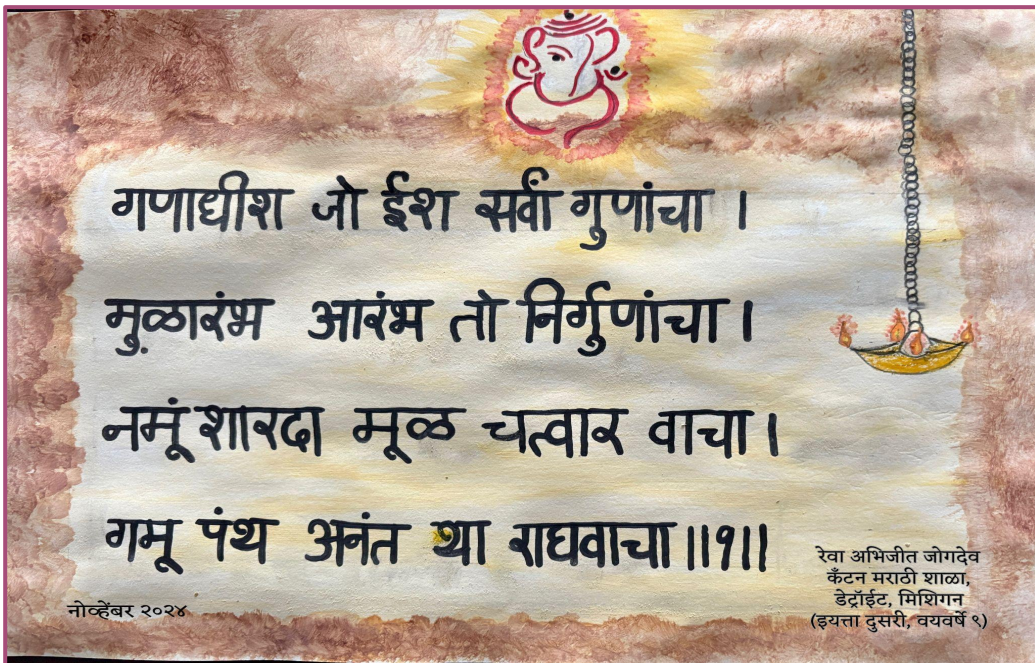 गणाधीश जो ईश सर्वां गुणांचा ।
मुळारंभ आरंभ तो निर्गुणांचा ।
नमूं शारदा मूळ चत्वार वाचा ।
गमू पंथ अनंत या राघवाचा ॥१॥
नोव्हेंबर २०२४
रेवा अभिजीत जोगदेव
कँटन मराठी शाळा,
डेट्रॉईट, मिशिगन
(इयत्ता दुसरी, वयवर्षे ९)